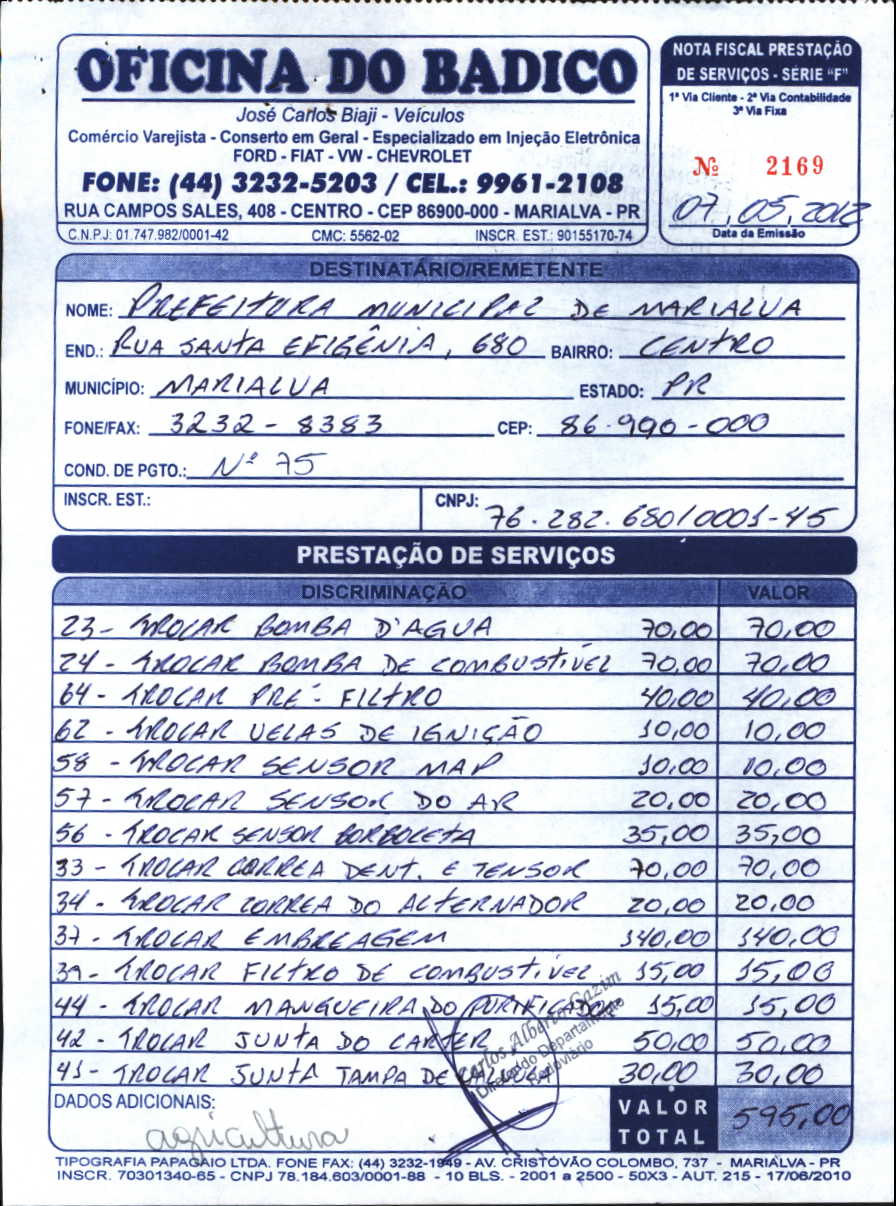 OFICINA DO BADICO
José Carlos Biaji - Veículos
Comércio Varejista - Conserto em Geral - Especializado em Injeção Eletrônica
FORD - FIAT - VW - CHEVROLET
FONE: (44) 3232-5203 / CEL.: 9961-2108
RUA CAMPOS SALES, 408 - CENTRO - CEP 86900-000 - MARIALVA - PR
C.N.P.J: 01.747.982/0001-42 CMC: 5562-02 INSCR. EST.: 90155170-74
NOTA FISCAL PRESTAÇÃO
DE SERVIÇOS - SÉRIE "F"
1ª Via Cliente - 2ª Via Contabilidade
3ª Via Fixa
Nº 2169
07, 05, 2012
Data da Emissão
DESTINATÁRIO/REMETENTE
NOME: PREFEITURA MUNICIPAL DE MARIALVA
END.: RUA SANTA EFIGÊNIA, 680 BAIRRO: CENTRO
MUNICÍPIO: MARIALVA ESTADO: PR
FONE/FAX: 3232-8383 CEP: 86.990-000
COND. DE PGTO.: Nº 75
INSCR. EST.: CNPJ: 76.282.680/0001-45
PRESTAÇÃO DE SERVIÇOS
DISCRIMINAÇÃO VALOR
23 - TROCAR BOMBA D'AGUA 70,00 70,00
24 - TROCAR BOMBA DE COMBUSTÍVEL 70,00 70,00
64 - TROCAR PRÉ-FILTRO 40,00 40,00
62 - TROCAR VELAS DE IGNIÇÃO 10,00 10,00
58 - TROCAR SENSOR MAP 10,00 10,00
57 - TROCAR SENSOR DO AR 20,00 20,00
56 - TROCAR SENSOR BORBOLETA 35,00 35,00
33 - TROCAR CORREA DENT. E TENSOR 70,00 70,00
34 - TROCAR CORREA DO ALTERNADOR 20,00 20,00
37 - TROCAR EMBREAGEM 140,00 140,00
39 - TROCAR FILTRO DE COMBUSTIVEL 15,00 15,00
44 - TROCAR MANGUEIRA DO 15,00 15,00
42 - TROCAR JUNTA DO CARTER 50,00 50,00
41 - TROCAR JUNTA TAMPA DE 30,00 30,00
Carlos Alberto Gazim
Diretor do Departamento
Rodoviário
DADOS ADICIONAIS:
agricultura
VALOR TOTAL 595,00
TIPOGRAFIA PAPAGAIO LTDA. FONE FAX: (44) 3232-1949 - AV. CRISTÓVÃO COLOMBO, 737 - MARIALVA - PR
INSCR. 70301340-65 - CNPJ 78.184.603/0001-88 - 10 BLS. - 2001 a 2500 - 50X3 - AUT. 215 - 17/06/2010